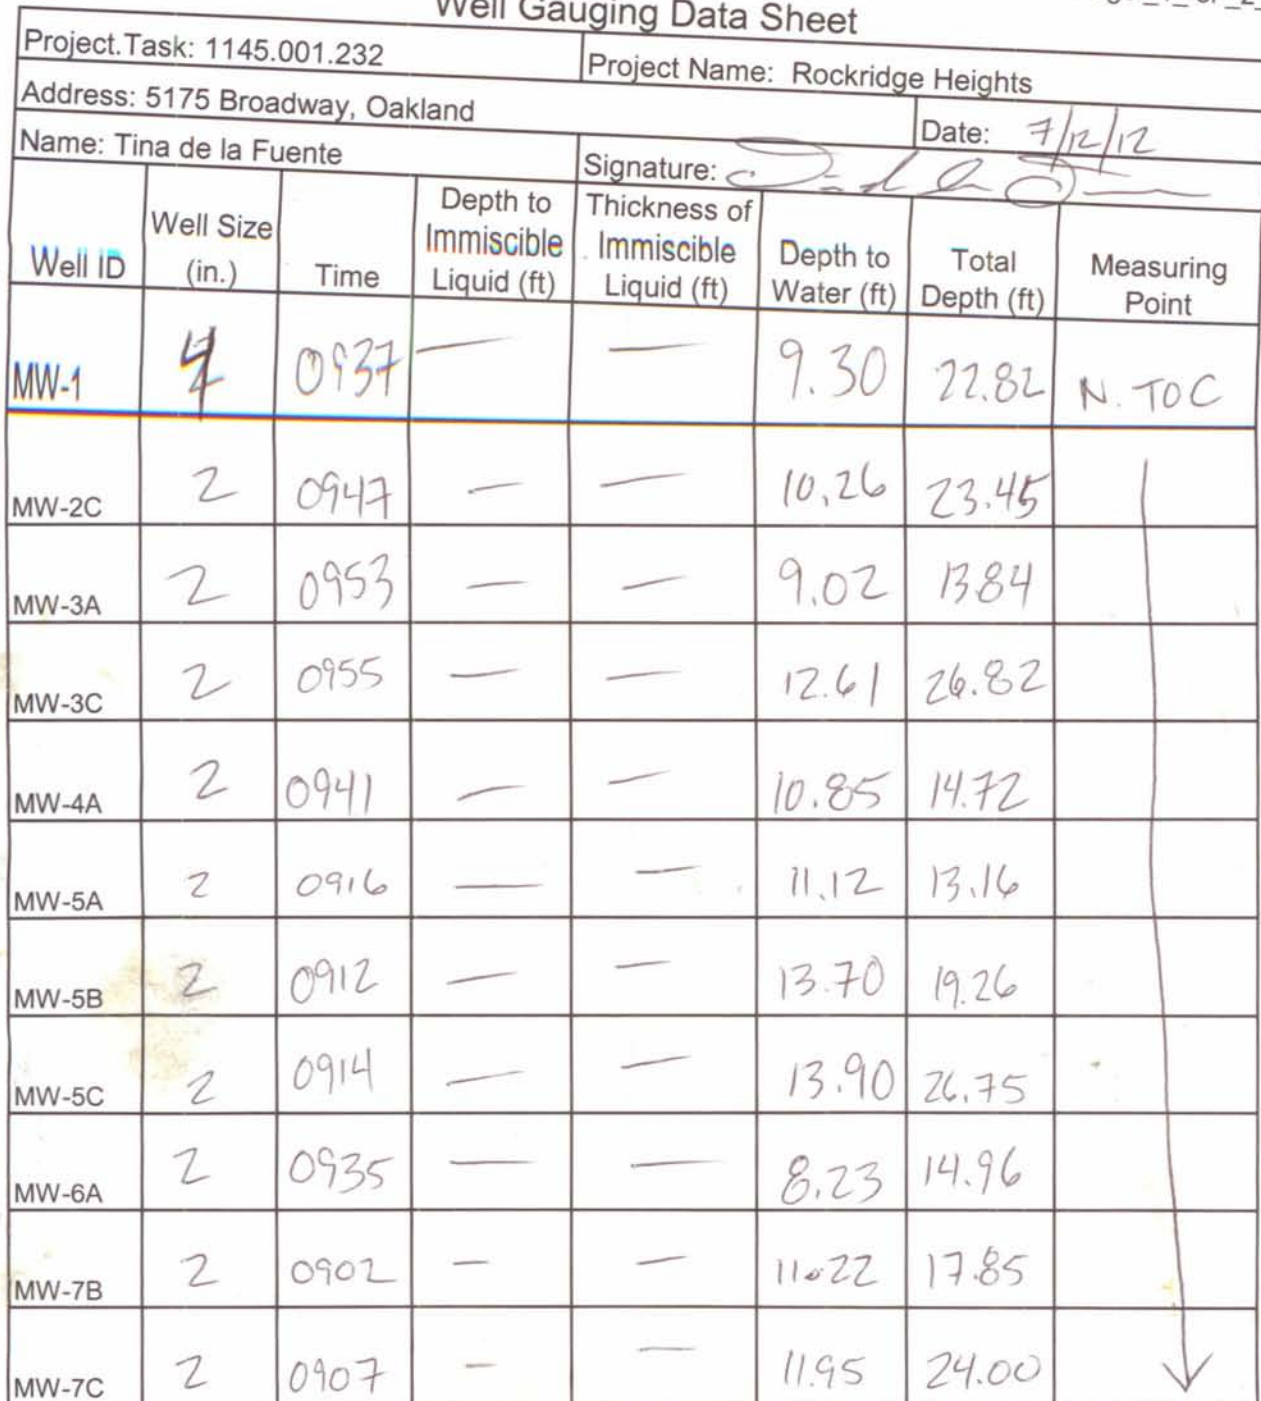 Well Gauging Data Sheet
Project.Task: 1145.001.232 Project Name: Rockridge Heights
Address: 5175 Broadway, Oakland Date: 7/12/12
Name: Tina de la Fuente Signature:
Well ID Well Size (in.) Time Depth to Immiscible Liquid (ft) Thickness of Immiscible Liquid (ft) Depth to Water (ft) Total Depth (ft) Measuring Point
MW-1 4 0937 — — 9.30 22.82 N. TOC
MW-2C 2 0947 — — 10.26 23.45
MW-3A 2 0953 — — 9.02 13.84
MW-3C 2 0955 — — 12.61 26.82
MW-4A 2 0941 — — 10.85 14.72
MW-5A 2 0916 — — 11.12 13.16
MW-5B 2 0912 — — 13.70 19.26
MW-5C 2 0914 — — 13.90 26.75
MW-6A 2 0935 — — 8.23 14.96
MW-7B 2 0902 — — 11.22 17.85
MW-7C 2 0907 — — 11.95 24.00